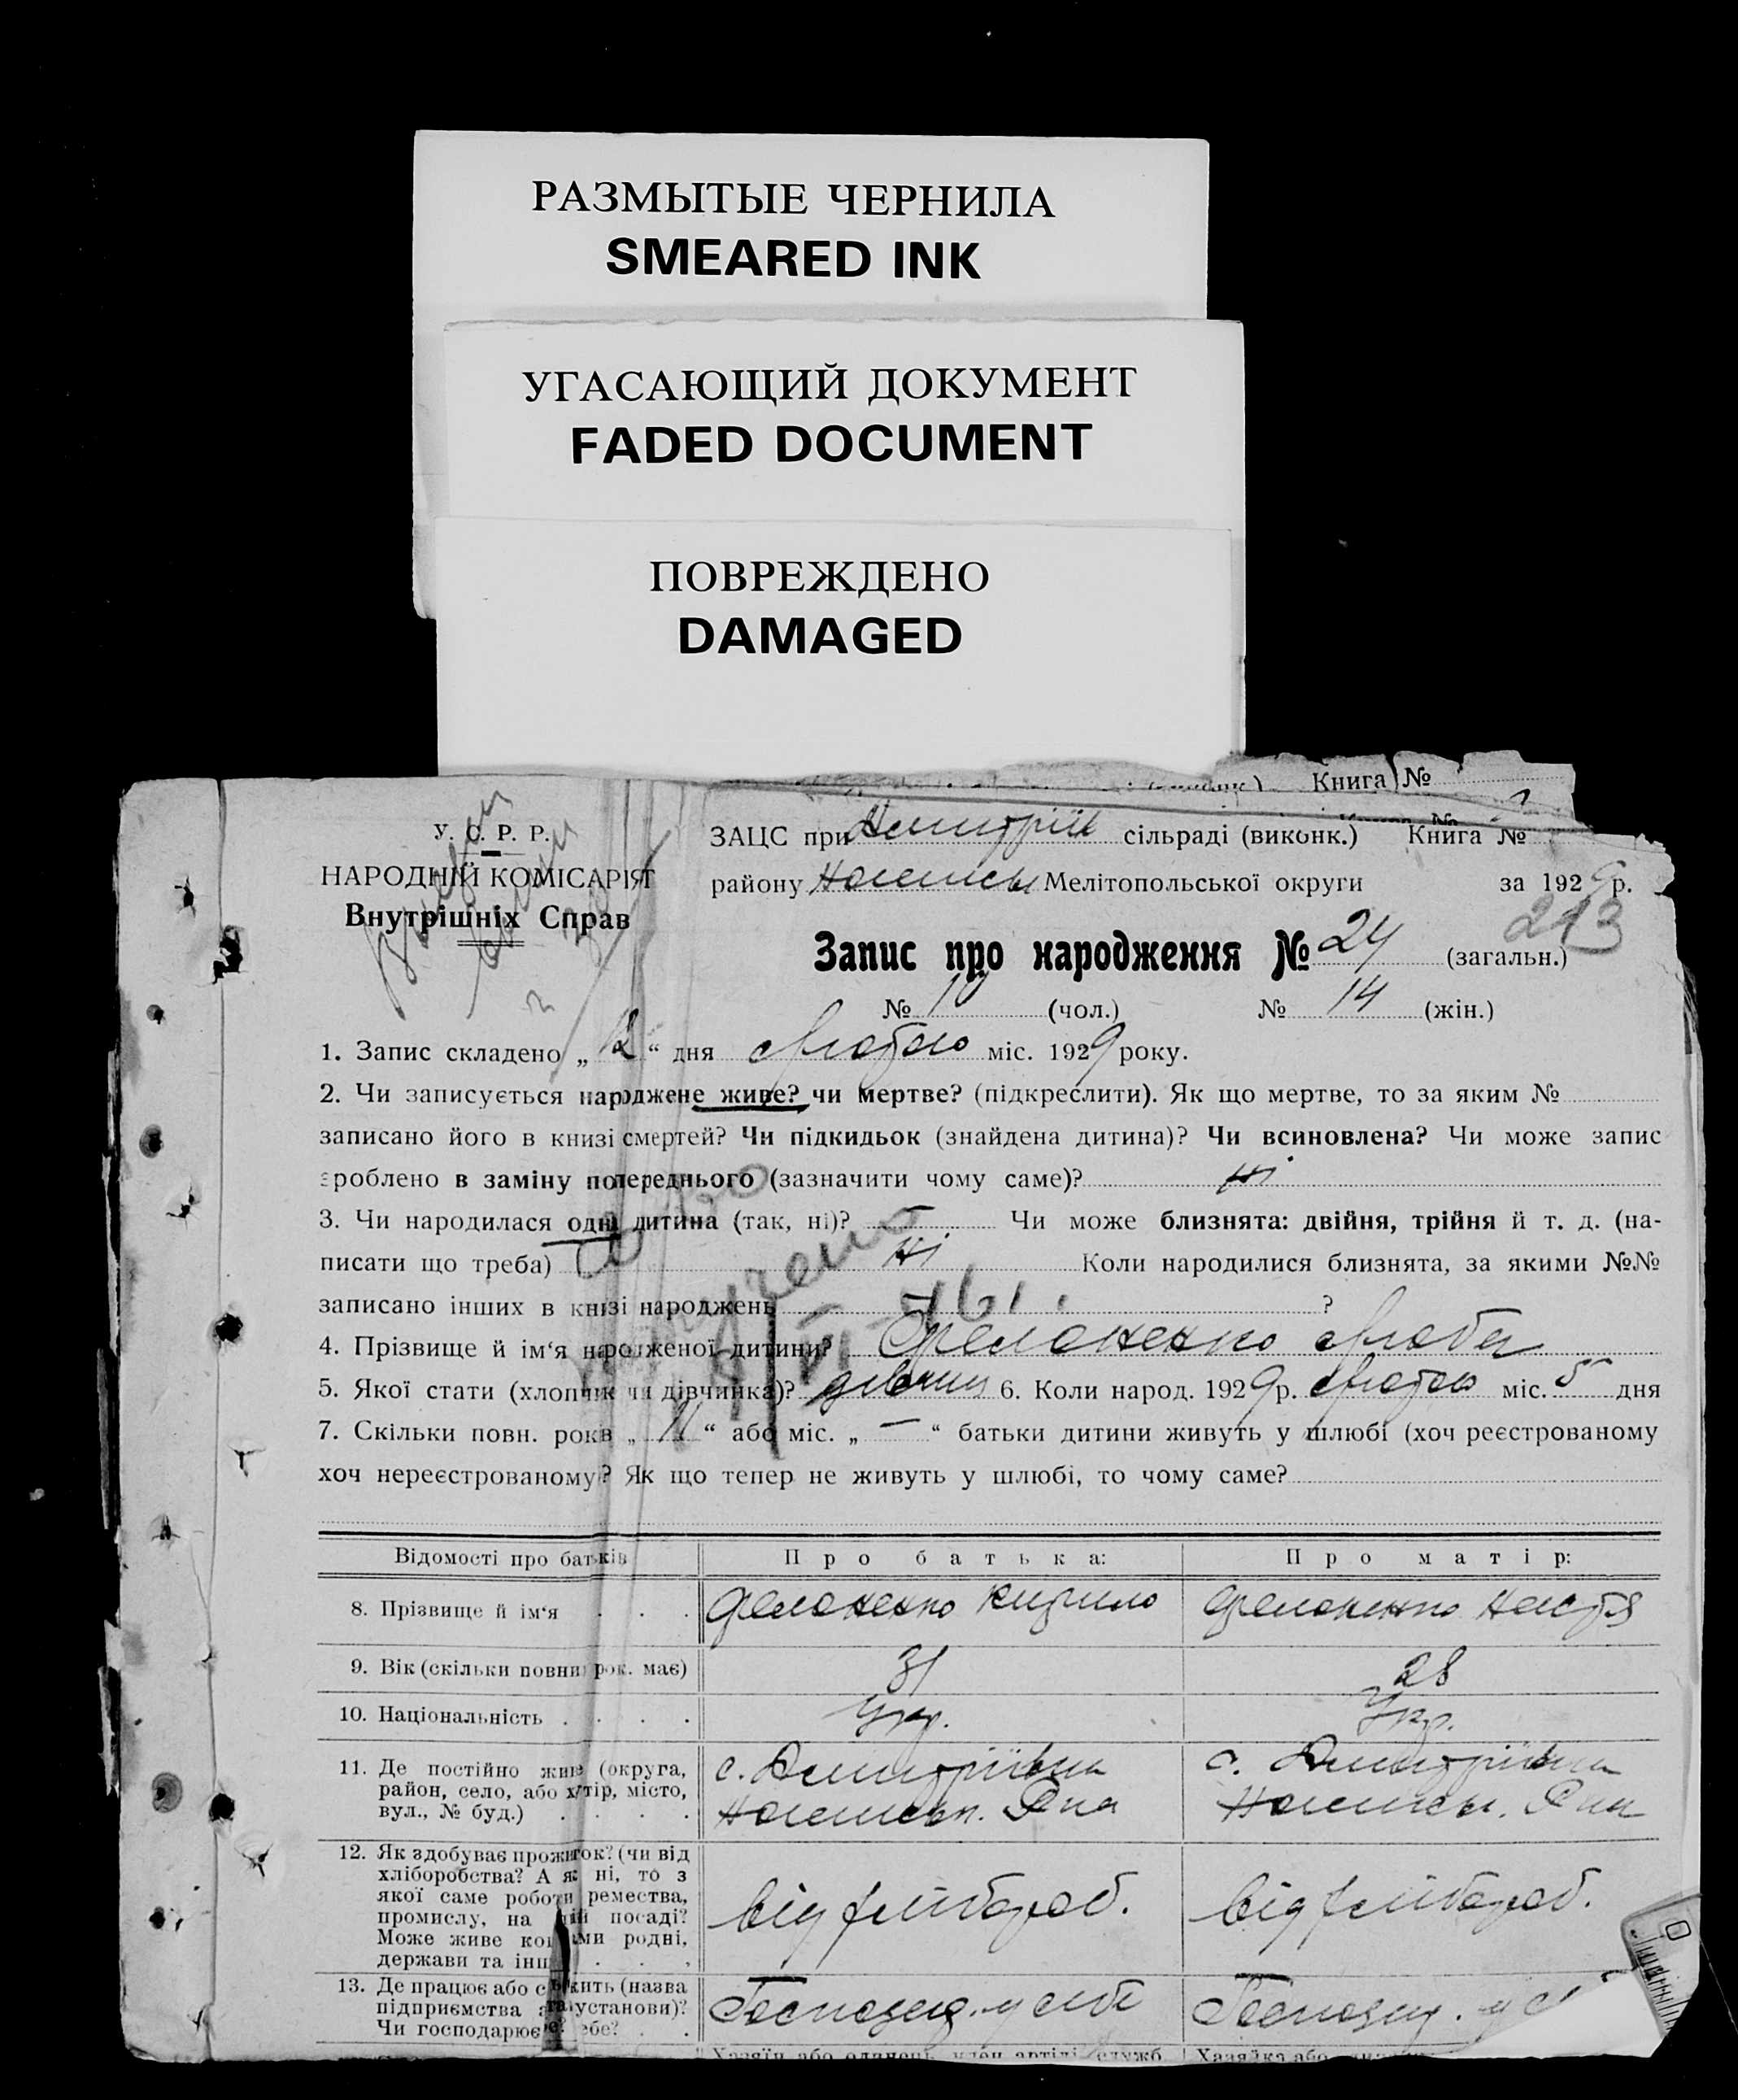 РАЗМЫТЫЕ ЧЕРНИЛА
SMEARED INK
УГАСАЮЩИЙ ДОКУМЕНТ
FADED DOCUMENT
ПОВРЕЖДЕНО
DAMAGED
Книга №
У. С. Р. Р.
НАРОДНІЙ КОМІСАРІЯТ
Внутрішніх Справ
ЗАЦС при сільраді (виконк.) Книга №
району Мелітопольської округи за 1929 р.
213
Запис про народження № 24 (загальн.)
№ 10 (чол.) № 14 (жін.)
1. Запис складено „12“ дня лютого міс. 1929 року.
2. Чи записується народжене живе? чи мертве? (підкреслити). Як що мертве, то за яким №
записано його в книзі смертей? Чи підкидьок (знайдена дитина)? Чи всиновлена? Чи може запис
зроблено в заміну попереднього (зазначити чому саме)? ні
3. Чи народилася одна дитина (так, ні)? — Чи може близнята: двійня, трійня й т. д. (на-
писати що треба) ні Коли народилися близнята, за якими №№
записано інших в книзі народжень — ?
4. Прізвище й ім‘я народженої дитини? Люба
5. Якої стати (хлопчик чи дівчинка)? дівчин 6. Коли народ. 1929 р. лютого міс. 5 дня
7. Скільки повн. років „11“ або міс. „—“ батьки дитини живуть у шлюбі (хоч реєстрованому
хоч нереєстрованому)? Як що тепер не живуть у шлюбі, то чому саме?
Відомості про батьків Про батька: Про матір:
8. Прізвище й ім‘я . . . Кирило Настя
9. Вік (скільки повних рок. має) 31 28
10. Національність . . . . Укр. Укр.
11. Де постійно живе (округа, с. Дмитрівка с. Дмитрівка
район, село, або хутір, місто, Р-на Р-на
вул., № буд.) . . . .
12. Як здобуває прожиток? (чи від
хліборобства? А як ні, то з
якої саме роботи, ремества, від хлібороб. від хлібороб.
промислу, на якій посаді?
Може живе коштами родні,
держави та інш. . . . .
13. Де працює або служить (назва
підприємства або установи)? Господар. у себе Господар. у
Чи господарює у себе? . .
Хазяїн або одинець, член артілі, служб. Хазяйка або